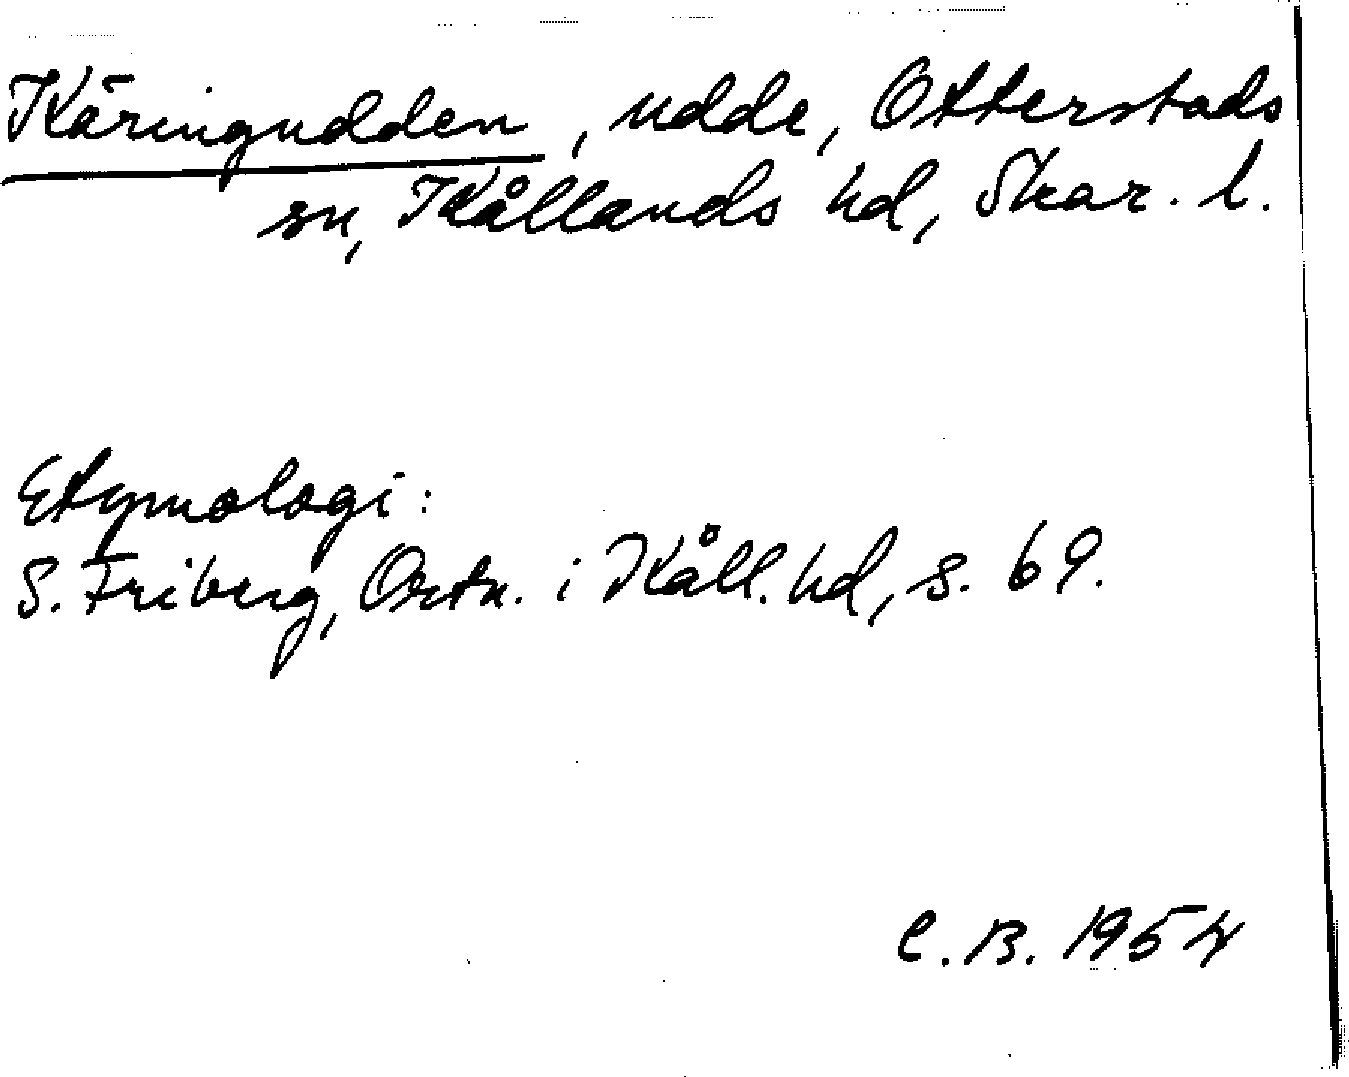 Käringudden, udde, Otterstads
sn, Kållands hd, Skar. l.
Etymologi:
S. Friberg, Ortn. i Kåll. hd, s. 69.
C. B. 1954